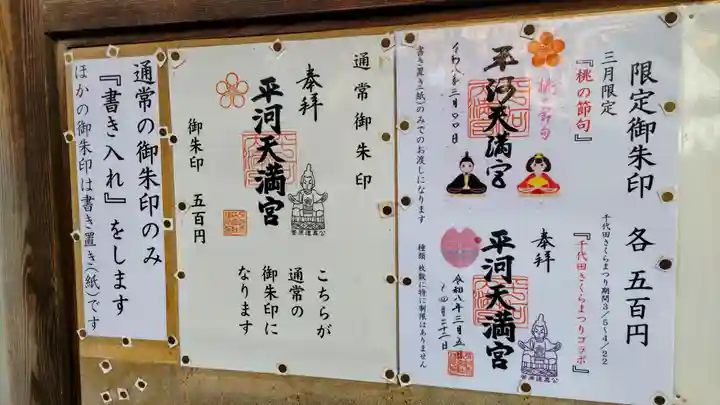 限定御朱印 各五百円
三月限定
『桃の節句』
平河天満宮
桃の節句
令和八年三月〇〇日
書き置き(紙)のみでのお渡しになります
千代田さくらまつり期間3/5~4/22
『千代田さくらまつりコラボ』
奉拝
平河天満宮
菅原道真公
令和八年三月五日
~四月二十二日
種類、枚数に特に制限はありません
通常御朱印
奉拝
平河天満宮
菅原道真公
御朱印 五百円
こちらが
通常の
御朱印に
なります
通常の御朱印のみ
『書き入れ』をします
ほかの御朱印は書き置き(紙)です